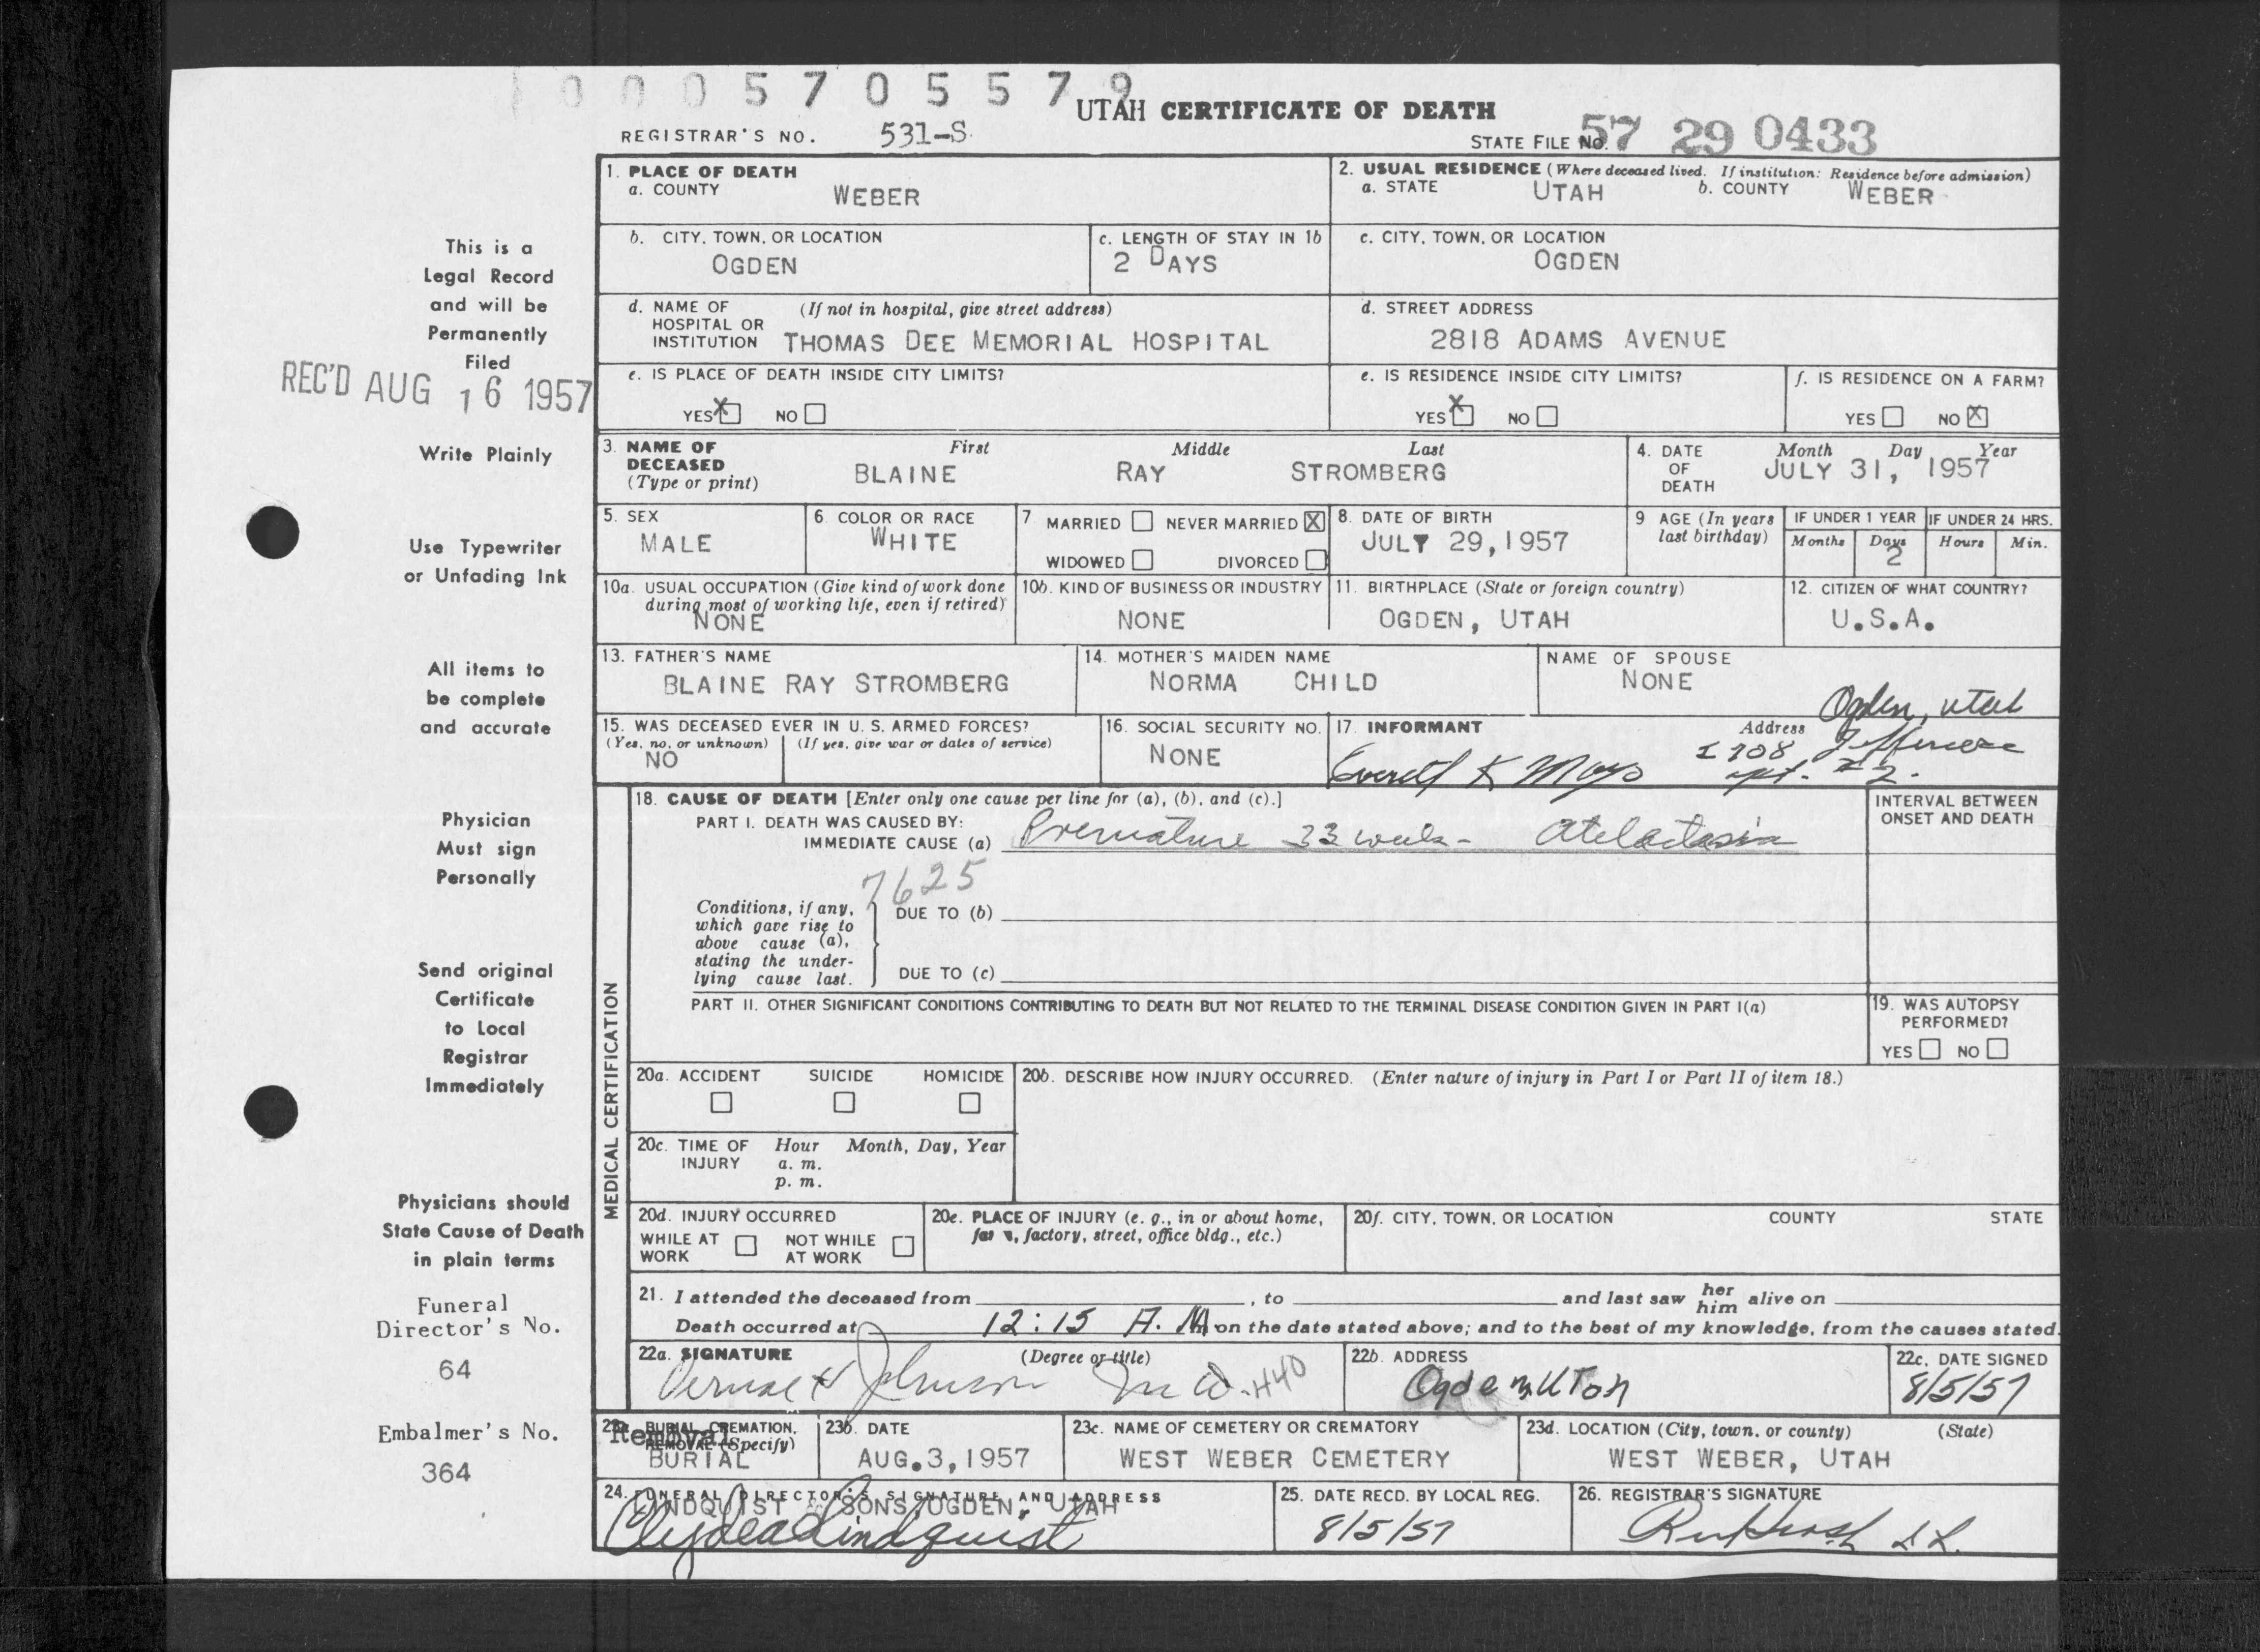 0005705579
UTAH CERTIFICATE OF DEATH
REGISTRAR'S NO. 531-S
STATE FILE NO. 57 29 0433
This is a
Legal Record
and will be
Permanently
Filed
REC'D AUG 16 1957
Write Plainly
Use Typewriter
or Unfading Ink
All items to
be complete
and accurate
Physician
Must sign
Personally
Send original
Certificate
to Local
Registrar
Immediately
Physicians should
State Cause of Death
in plain terms
Funeral
Director's No.
64
Embalmer's No.
364
1. PLACE OF DEATH
a. COUNTY WEBER
2. USUAL RESIDENCE (Where deceased lived. If institution: Residence before admission)
a. STATE UTAH b. COUNTY WEBER
b. CITY, TOWN, OR LOCATION
OGDEN
c. LENGTH OF STAY IN 1b
2 DAYS
c. CITY, TOWN, OR LOCATION
OGDEN
d. NAME OF (If not in hospital, give street address)
HOSPITAL OR
INSTITUTION THOMAS DEE MEMORIAL HOSPITAL
d. STREET ADDRESS
2818 ADAMS AVENUE
e. IS PLACE OF DEATH INSIDE CITY LIMITS?
YES X NO
e. IS RESIDENCE INSIDE CITY LIMITS?
YES X NO
f. IS RESIDENCE ON A FARM?
YES NO X
3. NAME OF First Middle Last
DECEASED
(Type or print) BLAINE RAY STROMBERG
4. DATE Month Day Year
OF
DEATH JULY 31, 1957
5. SEX
MALE
6. COLOR OR RACE
WHITE
7. MARRIED NEVER MARRIED X
WIDOWED DIVORCED
8. DATE OF BIRTH
JULY 29, 1957
9 AGE (In years
last birthday)
IF UNDER 1 YEAR IF UNDER 24 HRS.
Months Days Hours Min.
2
10a. USUAL OCCUPATION (Give kind of work done
during most of working life, even if retired)
NONE
10b. KIND OF BUSINESS OR INDUSTRY
NONE
11. BIRTHPLACE (State or foreign country)
OGDEN, UTAH
12. CITIZEN OF WHAT COUNTRY?
U.S.A.
13. FATHER'S NAME
BLAINE RAY STROMBERG
14. MOTHER'S MAIDEN NAME
NORMA CHILD
NAME OF SPOUSE
NONE
15. WAS DECEASED EVER IN U. S. ARMED FORCES?
(Yes, no, or unknown) (If yes, give war or dates of service)
NO
16. SOCIAL SECURITY NO.
NONE
17. INFORMANT Address
Ogden, Utah
Everett K
18. CAUSE OF DEATH [Enter only one cause per line for (a), (b), and (c).]
PART I. DEATH WAS CAUSED BY:
IMMEDIATE CAUSE (a) Premature 33 weeks - Atelectasia
INTERVAL BETWEEN
ONSET AND DEATH
7625
Conditions, if any,
which gave rise to
above cause (a),
stating the under-
lying cause last.
DUE TO (b)
DUE TO (c)
PART II. OTHER SIGNIFICANT CONDITIONS CONTRIBUTING TO DEATH BUT NOT RELATED TO THE TERMINAL DISEASE CONDITION GIVEN IN PART I(a)
19. WAS AUTOPSY
PERFORMED?
YES NO
MEDICAL CERTIFICATION
20a. ACCIDENT SUICIDE HOMICIDE
20b. DESCRIBE HOW INJURY OCCURRED. (Enter nature of injury in Part I or Part II of item 18.)
20c. TIME OF Hour Month, Day, Year
INJURY a. m.
p. m.
20d. INJURY OCCURRED
WHILE AT NOT WHILE
WORK AT WORK
20e. PLACE OF INJURY (e. g., in or about home,
factory, street, office bldg., etc.)
20f. CITY, TOWN, OR LOCATION COUNTY STATE
21. I attended the deceased from , to and last saw her him alive on
Death occurred at 12:15 A. M on the date stated above; and to the best of my knowledge, from the causes stated.
22a. SIGNATURE (Degree or title)
Johnson M D. H40
22b. ADDRESS
Ogden, Utah
22c. DATE SIGNED
8/5/57
23a. BURIAL, CREMATION,
REMOVAL (Specify)
Removal
BURIAL
23b. DATE
AUG. 3, 1957
23c. NAME OF CEMETERY OR CREMATORY
WEST WEBER CEMETERY
23d. LOCATION (City, town, or county) (State)
WEST WEBER, UTAH
24. FUNERAL DIRECTOR'S SIGNATURE AND ADDRESS
LINDQUIST & SONS, OGDEN, UTAH
Clyde Lindquist
25. DATE RECD. BY LOCAL REG.
8/5/57
26. REGISTRAR'S SIGNATURE